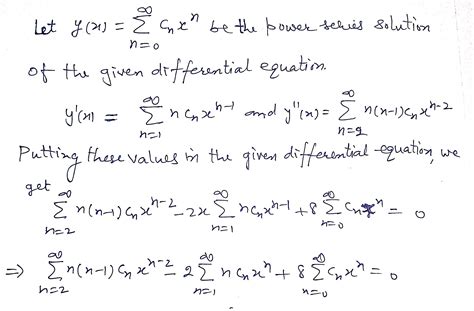 Let y(x) = ∞∑n=0 cₙxⁿ be the power series solution
of the given differential equation.
y'(x) = ∞∑n=1 n cₙ xⁿ⁻¹ and y''(x) = ∞∑n=2 n(n-1)cₙxⁿ⁻²
Putting these values in the given differential equation, we
get
∞∑n=2 n(n-1) cₙ xⁿ⁻² - 2x ∞∑n=1 n cₙ xⁿ⁻¹ + 8 ∞∑n=0 cₙ xⁿ = 0
⇒ ∞∑n=2 n(n-1) cₙ xⁿ⁻² - 2 ∞∑n=1 n cₙ xⁿ + 8 ∞∑n=0 cₙ xⁿ = 0